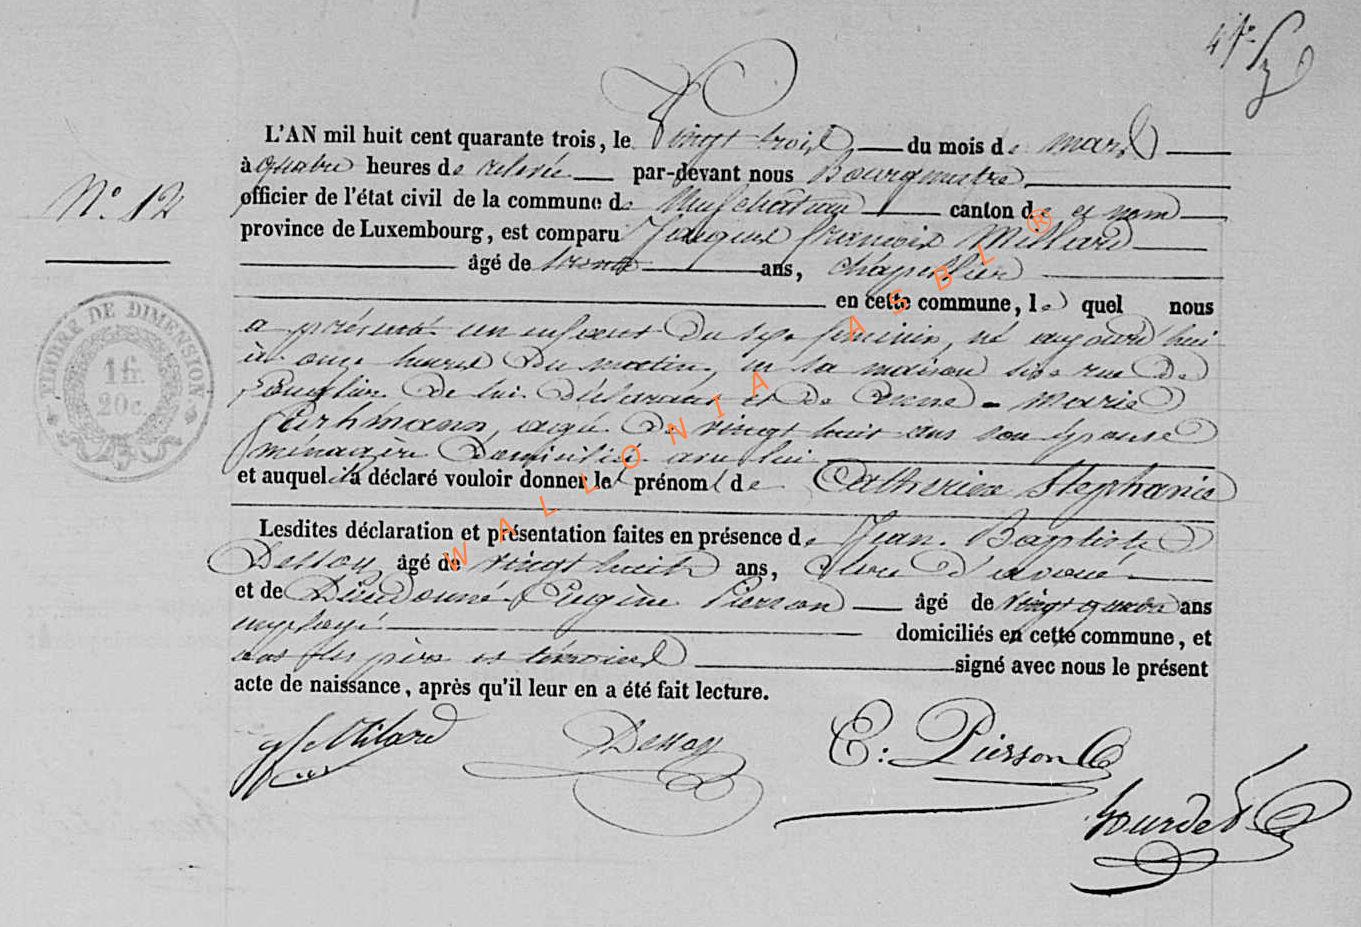 N° 12
L'AN mil huit cent quarante trois, le Vingt trois du mois de mars
à quatre heures de relevée par-devant nous Bourgmestre
officier de l'état civil de la commune de Neufchateau canton de ce nom
province de Luxembourg, est comparu Jacques françois Millard
âgé de trente ans, chapellier
en cette commune, le quel nous
a présenté un enfant du sexe féminin, né aujourd'hui
à onze heures du matin, en sa maison sise rue de
de lui déclarant et de Anne - Marie
agée de vingt huit ans son épouse
ménagère domiciliée avec lui
et auquel il a déclaré vouloir donner les prénoms de Catherine Stephanie
Lesdites déclaration et présentation faites en présence de Jean-Baptiste
Dessoy âgé de vingt huit ans, clerc d'avoué
et de Dieudonné Eugène Pierson âgé de vingt ans
employé domiciliés en cette commune, et
ont les père et témoins signé avec nous le présent
acte de naissance, après qu'il leur en a été fait lecture.
Dessoy
E: Pierson
Bourdet
TIMBRE DE DIMENSION
1 fr.
20 c.
WALLONIA ASBL ®